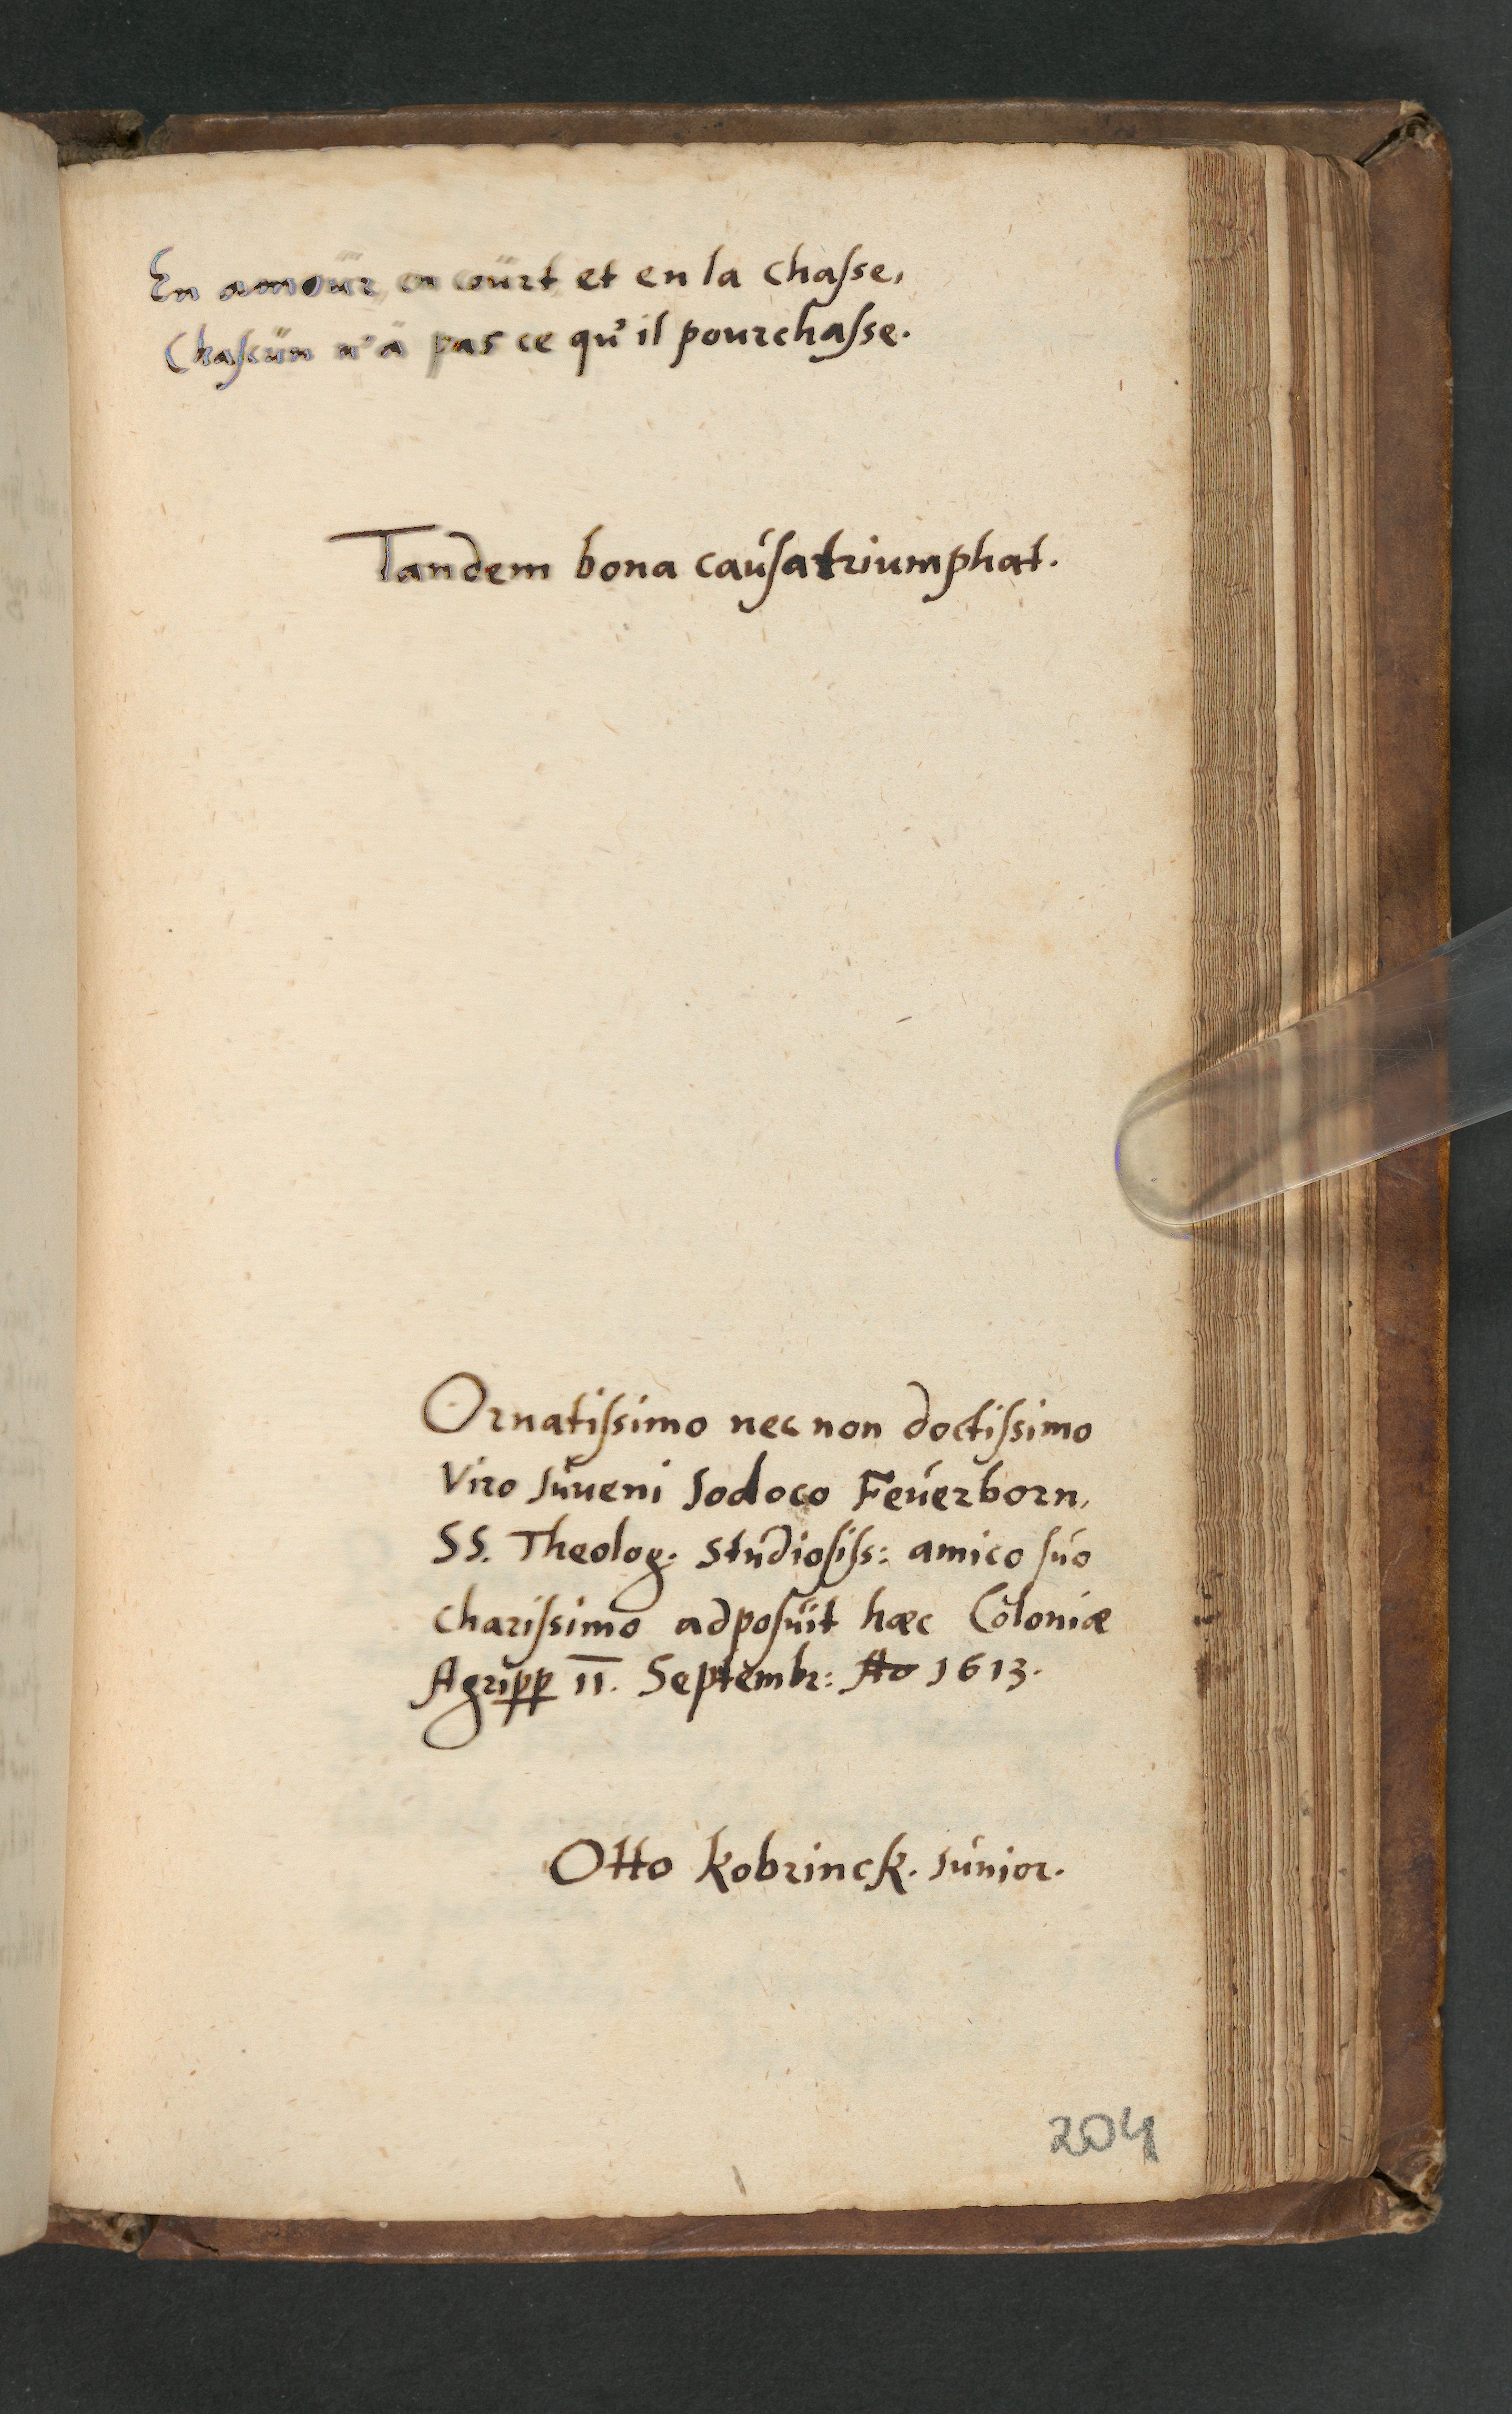 En amour, en court et en la chaſse,
Chaſcun n'a pas ce qu'il pourchaſse.
Tandem bona cauſa triumphat.
Ornatiſsimo nec non doctiſsimo
Viro Juveni Jodoco Feuerborn,
SS. Theolog. Studioſiſs: amico ſuo
chariſsimo adpoſuit hæc Coloniæ
Agripp 11. Septembr: Ao 1613.
Otto Kobrinck. Junior.
204